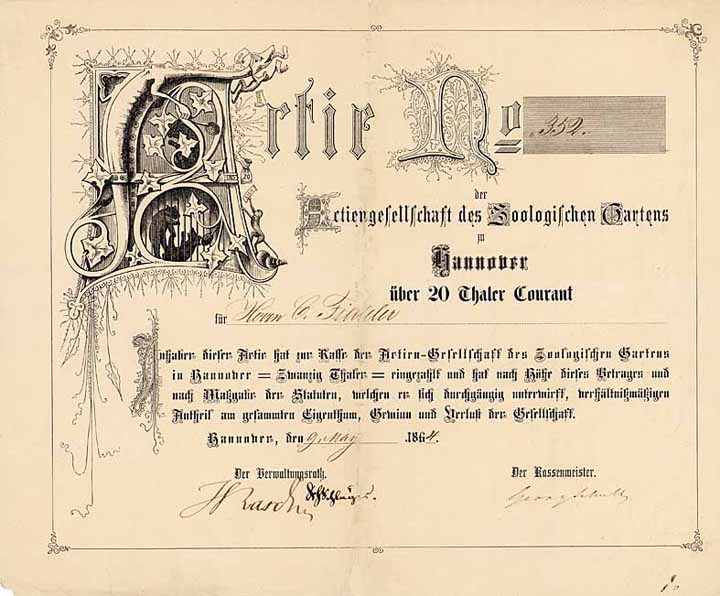 Actie No 352.
der
Actiengesellschaft des Zoologischen Gartens
zu
Hannover
über 20 Thaler Courant
für Herrn C.
Inhaber dieser Actie hat zur Kasse der Actien-Gesellschaft des Zoologischen Gartens
in Hannover = Zwanzig Thaler = eingezahlt und hat nach Höhe dieses Betrages und
nach Maßgabe der Statuten, welchen er sich durchgängig unterwirft, verhältnißmäßigen
Antheil am gesammten Eigenthum, Gewinn und Verlust der Gesellschaft.
Hannover, den 9. May 1864.
Der Verwaltungsrath.
Der Kassenmeister.
Georg Schultz